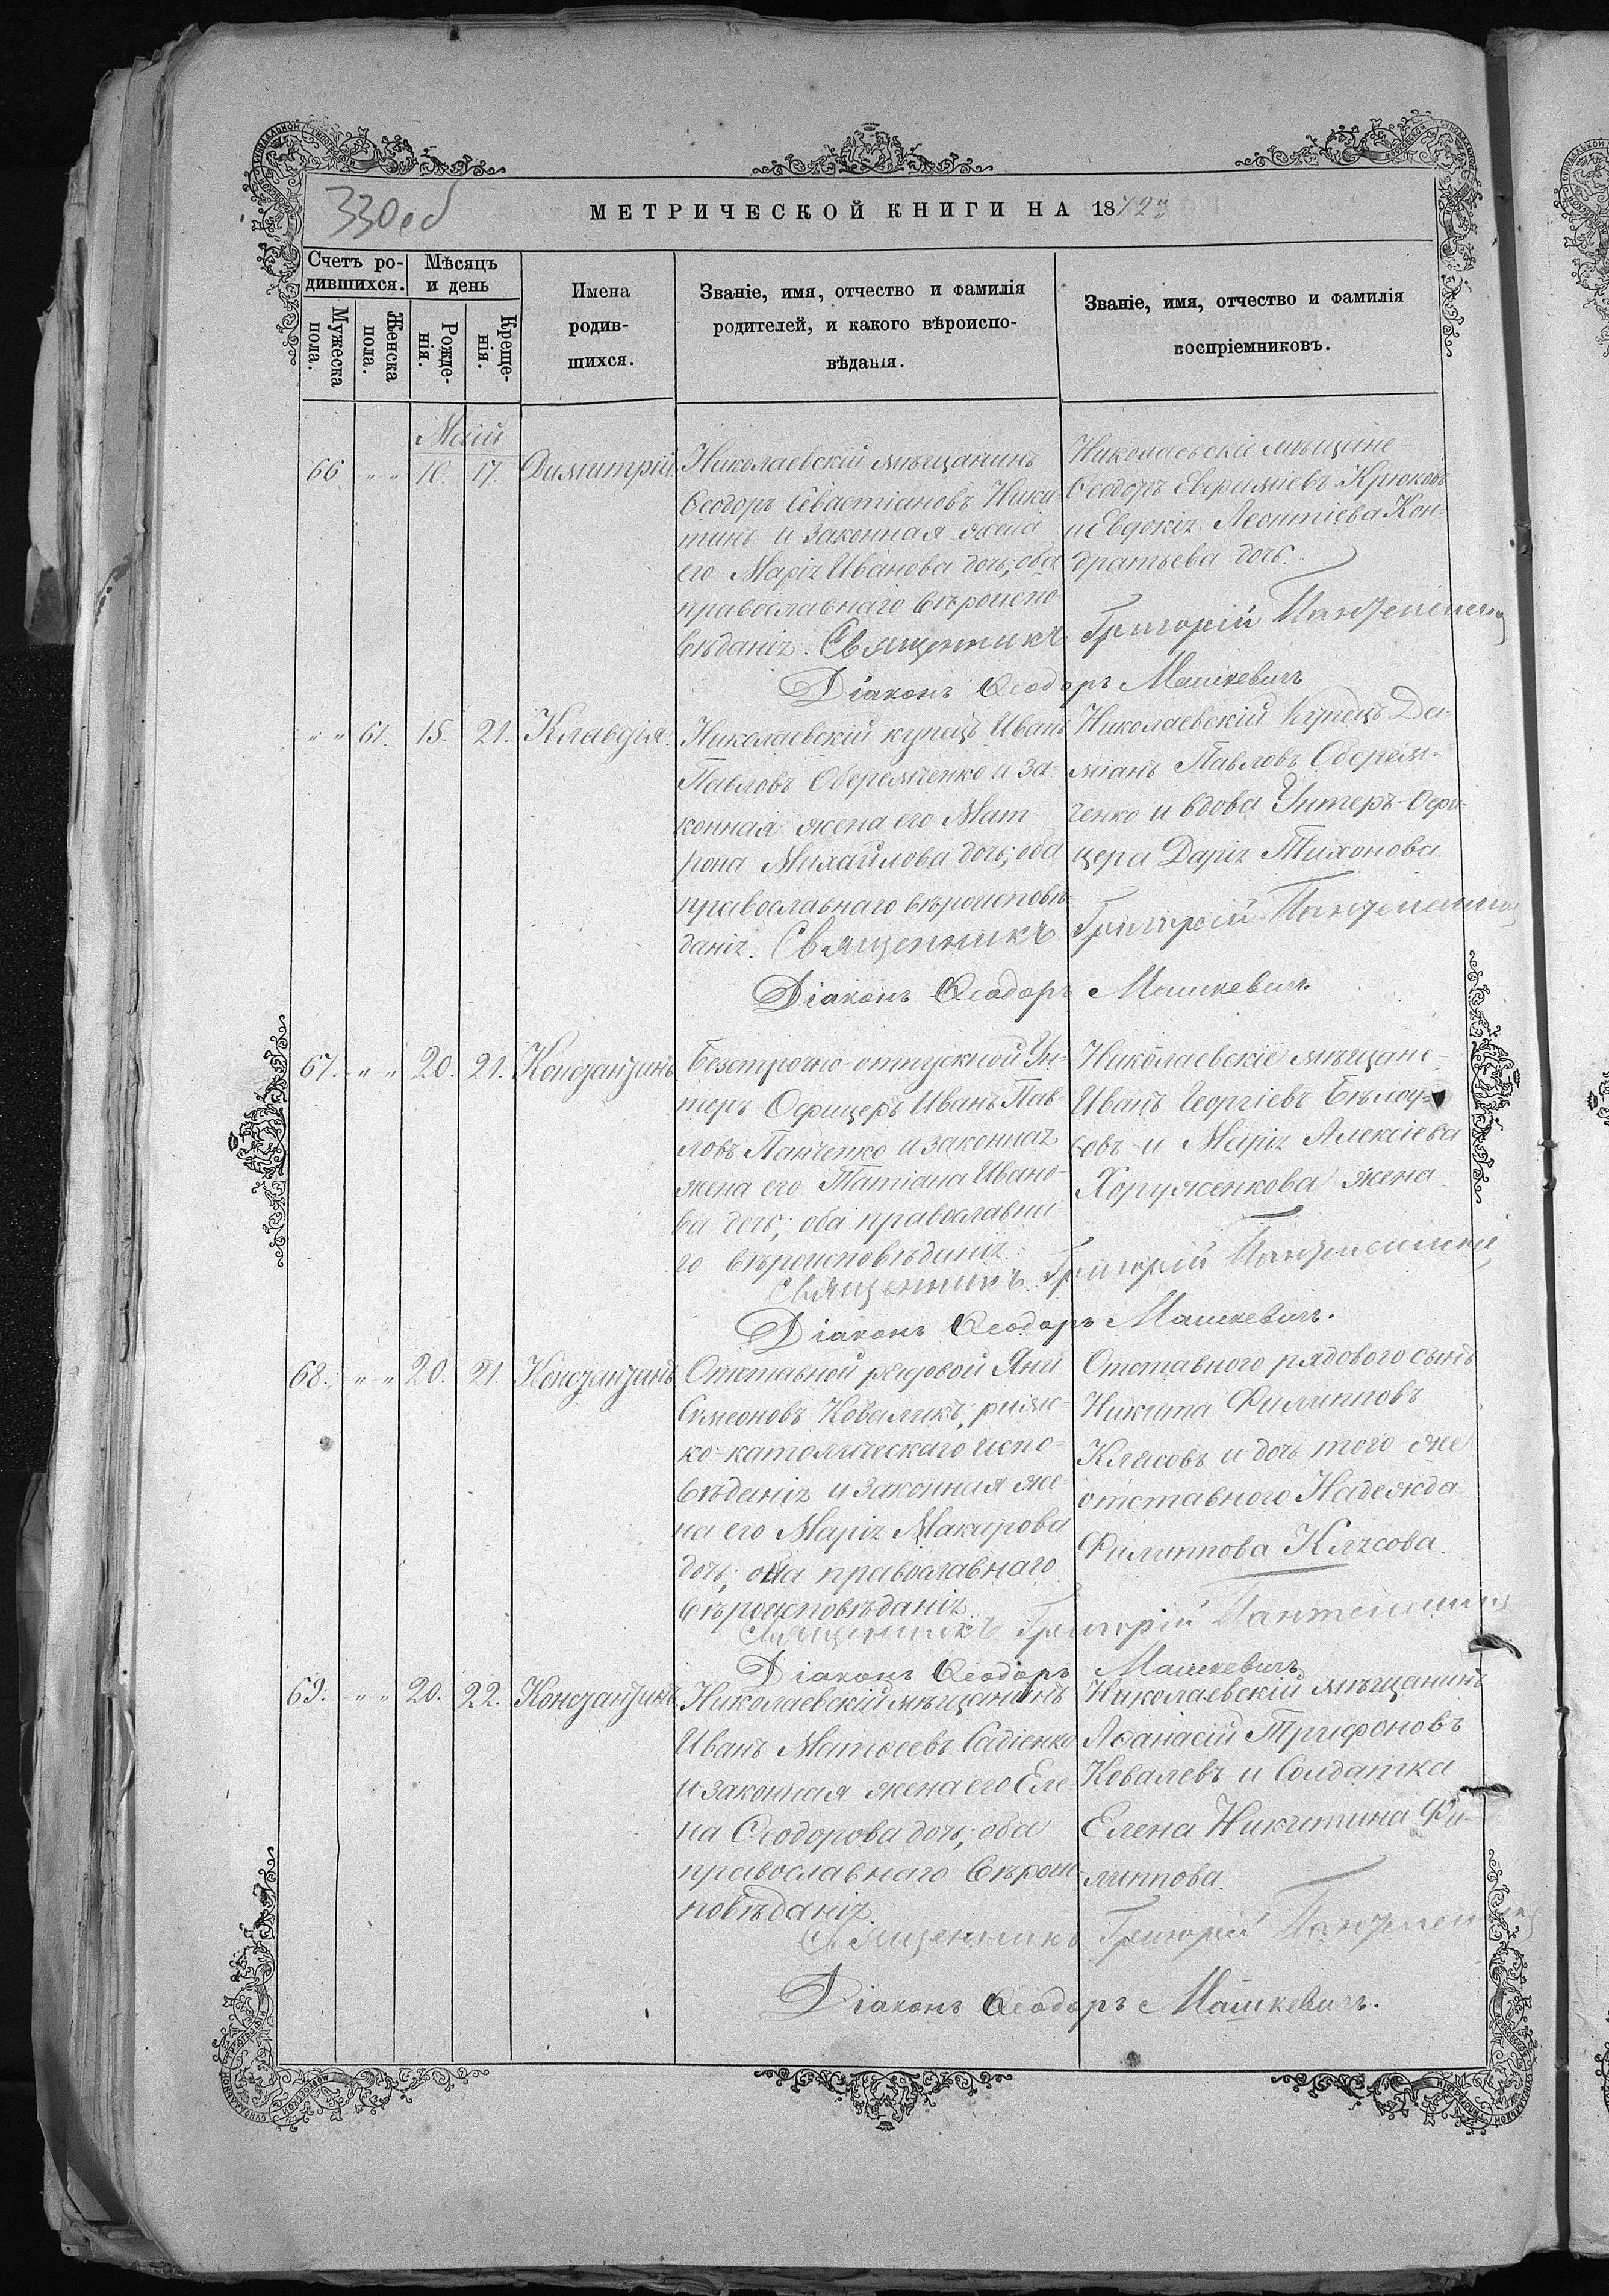 330об
МЕТРИЧЕСКОЙ КНИГИ НА 1872й
Счетъ ро-
дившихся.
Мѣсяцъ
и день
Мужеска
пола.
Женска
пола.
Рожде-
нія.
Креще-
нія.
Имена
родив-
шихся.
Званіе, имя, отчество и фамилія
родителей, и какого вѣроиспо-
вѣданія.
Званіе, имя, отчество и фамилія
воспріемниковъ.
Маій
66 „ „ 10. 17. Димитрій.
Николаевскій мѣщанинъ
Ѳеодоръ Севастіановъ Ники-
тинъ и законная жена
его Марія Иванова дочь; оба
православнаго вѣроиспо-
вѣданія. Священникъ Григорій
Николаевскіе мѣщане-
Ѳеодоръ Евѳиміевъ Крюковъ
и Евдокія Леонтіева Кон-
дратьева дочь.
Діаконъ Ѳеодоръ Машкевичъ
„ „ 61. 15. 21. Клавдія.
Николаевскій купецъ Иванъ
Павловъ Оберемченко и за-
конная жена его Мат-
рона Михайлова дочь; оба
православнаго вѣроисповѣ-
данія. Священникъ Григорій
Николаевскій купецъ Да-
міанъ Павловъ Оберем-
ченко и вдова Унтеръ-Офи-
цера Дарія Тихонова
Діаконъ Ѳеодоръ Машкевичъ.
67. „ „ 20. 21. Константинъ
Безсрочно-отпускной Ун-
теръ Офицеръ Иванъ Пав-
ловъ Панченко и законная
жена его Татіана Ивано-
ва дочь; оба православна-
го вѣроисповѣданія.
Священникъ Григорій
Николаевскіе мѣщане-
Иванъ Георгіевъ Бѣлоу-
совъ и Марія Алексіева
Хоруженкова жена.
Діаконъ Ѳеодоръ Машкевичъ.
68. „ „ 20. 21. Константинъ
Отставной рядовой Янъ
Симеоновъ Коваликъ; римс-
ко-католическаго испо-
вѣданія и законная же-
на его Марія Макарова
дочь; она православнаго
вѣроисповѣданія
Священникъ Григорій
Отставного рядового сынъ
Никита Филипповъ
Клясовъ и дочь того-же
отставного Надежда
Филиппова Клясова.
Діаконъ Ѳеодоръ Машкевичъ
69. „ „ 20. 22. Константинъ.
Николаевскій мѣщанинъ
Иванъ Матѳеевъ Садіенко
и законная жена его Еле-
на Ѳеодорова дочь; оба
православнаго вѣроис-
повѣданія
Священникъ Григорій
Николаевскій мѣщанинъ
Аѳанасій Трифоновъ
Ковалевъ и Солдатка
Елена Никитина Фи-
липпова.
Діаконъ Ѳеодоръ Машкевичъ.